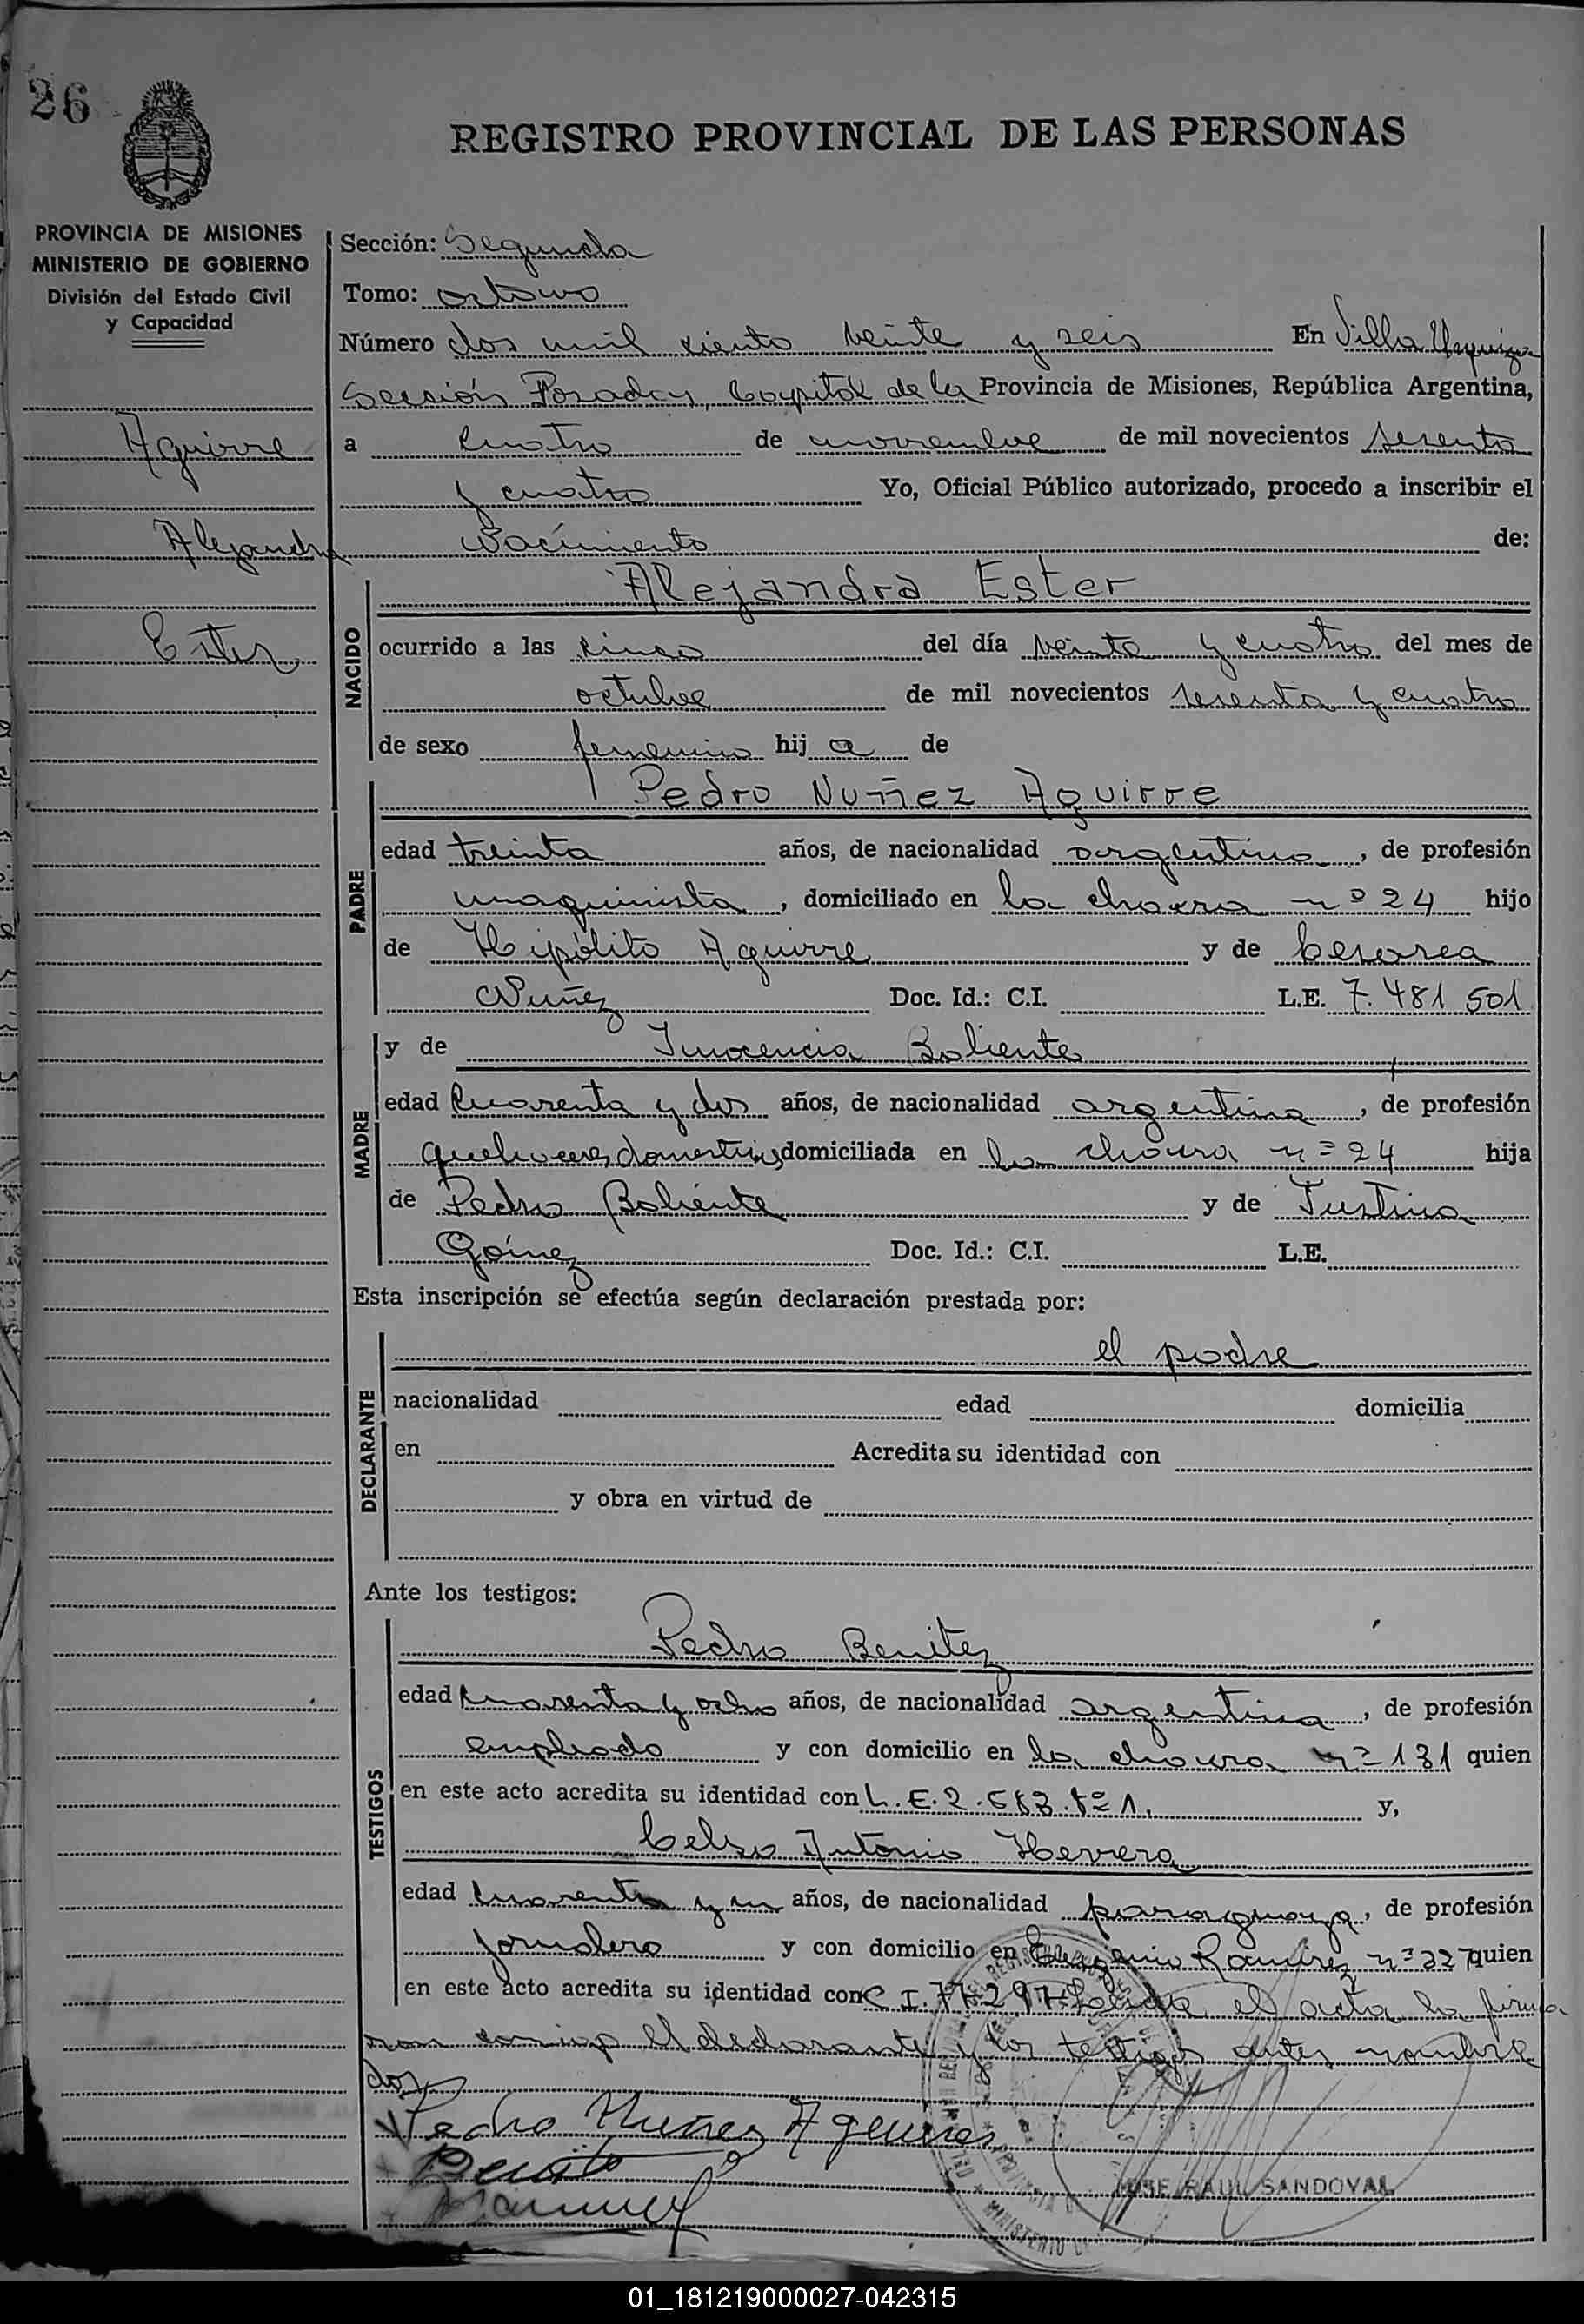 26
REGISTRO PROVINCIAL DE LAS PERSONAS
PROVINCIA DE MISIONES
MINISTERIO DE GOBIERNO
División del Estado Civil
y Capacidad
Aguirre
Alejandra
Ester
Sección: Segunda
Tomo: octavo
Número dos mil ciento veinte y seis En Villa Urquiza
Sección Posadas, Capital de la Provincia de Misiones, República Argentina,
a cuatro de noviembre de mil novecientos sesenta
y cuatro Yo, Oficial Público autorizado, procedo a inscribir el
Nacimiento de:
NACIDO
Alejandra Ester
ocurrido a las cinco del día veinte y cuatro del mes de
octubre de mil novecientos sesenta y cuatro
de sexo femenino hij a de
PADRE
Pedro Nuñez Aguirre
edad treinta años, de nacionalidad argentino, de profesión
maquinista, domiciliado en la chacra nº 24 hijo
de Hipólito Aguirre y de Cesarea
Nuñez Doc. Id.: C.I. L.E. 7.481 501
MADRE
y de Inocencia Baliente
edad cuarenta y dos años, de nacionalidad argentina, de profesión
quehaceres domesticos domiciliada en la chacra nº 24 hija
de Pedro Baliente y de Justina
Gómez Doc. Id.: C.I. L.E.
Esta inscripción se efectúa según declaración prestada por:
DECLARANTE
el padre
nacionalidad edad domicilia
en Acredita su identidad con
y obra en virtud de
Ante los testigos:
TESTIGOS
Pedro Benitez
edad cuarenta y ocho años, de nacionalidad argentina, de profesión
empleado y con domicilio en la chacra nº 131 quien
en este acto acredita su identidad con L.E. y,
Celso Antonio Herrera
edad cuarenta y un años, de nacionalidad paraguaya, de profesión
jornalero y con domicilio en Eugenio Ramirez nº 227 quien
en este acto acredita su identidad con C I. el acta la firma
ron conmigo el declarante y los testigos antes nombra
dos
Pedro Nuñez Aguirres
JOSE RAUL SANDOVAL
01_181219000027-042315